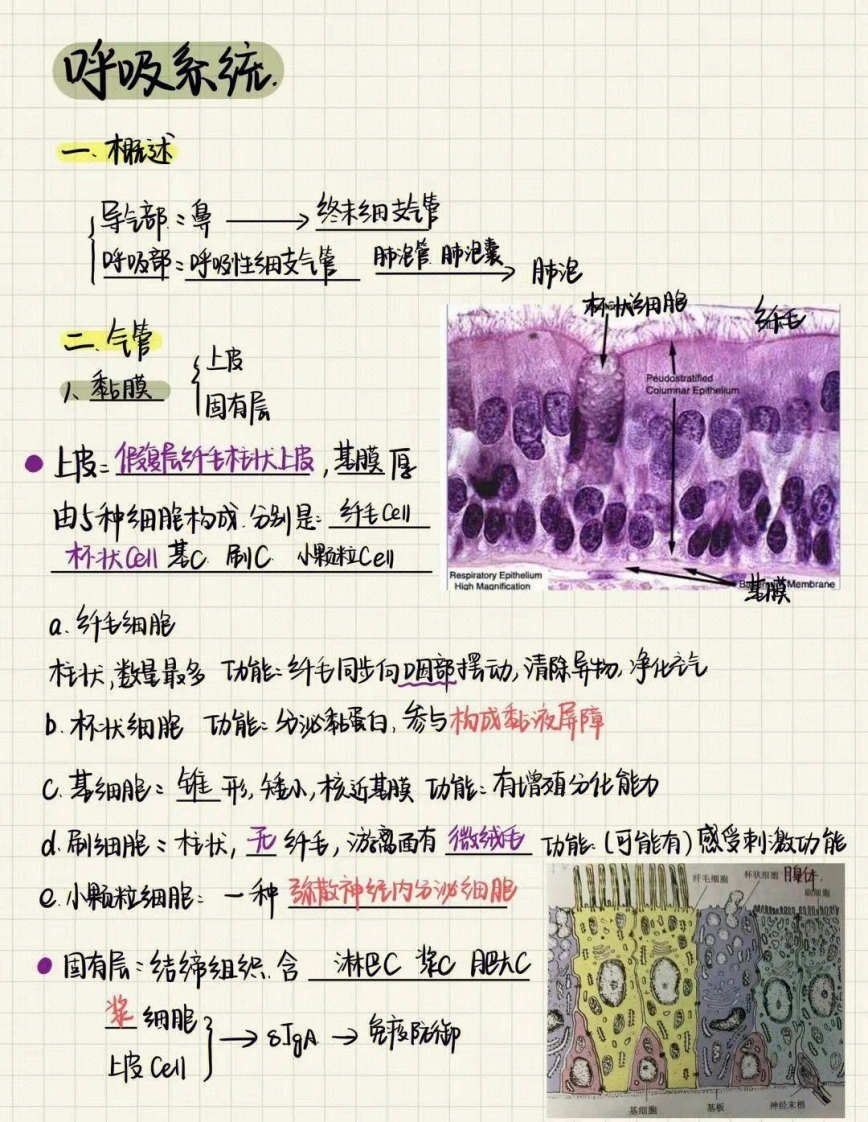 呼吸系统.
一、概述
导气部：鼻 ⟶ 终末细支气管
呼吸部：呼吸性细支气管 肺泡管 肺泡囊 ⟶ 肺泡
二、气管
1、黏膜 { 上皮
固有层
杯状细胞 纤毛
Pseudostratified
Columnar Epithelium
Respiratory Epithelium
High Magnification
基膜 Membrane
上皮：假复层纤毛柱状上皮，基膜厚
由5种细胞构成.分别是：纤毛Cell
杯状Cell 基C 刷C 小颗粒Cell
a.纤毛细胞
柱状，数量最多 功能：纤毛同步向咽部摆动，清除异物，净化空气
b.杯状细胞 功能：分泌黏蛋白，参与构成黏液屏障
c.基细胞：锥形，矮小，核近基膜 功能：有增殖分化能力
d.刷细胞：柱状，无纤毛，游离面有微绒毛 功能：(可能有)感受刺激功能
e.小颗粒细胞：一种弥散神经内分泌细胞
纤毛细胞 杯状细胞 刷细胞
固有层：结缔组织.含 淋巴C 浆C 肥大C
浆细胞
上皮Cell } → sIgA → 免疫防御
基细胞 基板 神经末梢